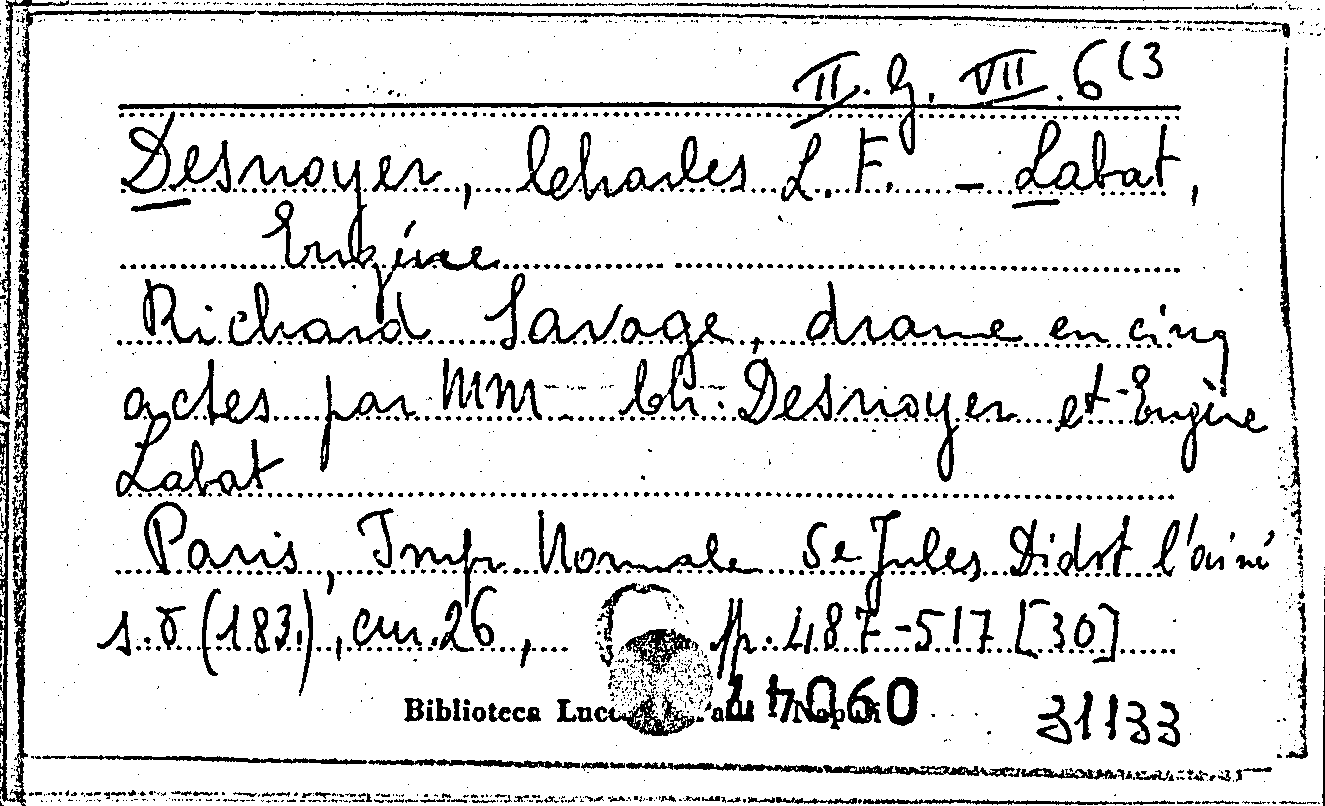 II. G. VII. 6 (3
Desnoyer, Charles L. F. - Labat,
Eugène
Richard Savage, drame en cinq
actes par MM. Ch. Desnoyer et Eugène
Labat
Paris, Impr Normale de Jules Didot l'ainé
s.d (183.), cm. 26, pp. 487-517 [30]
Biblioteca 31133